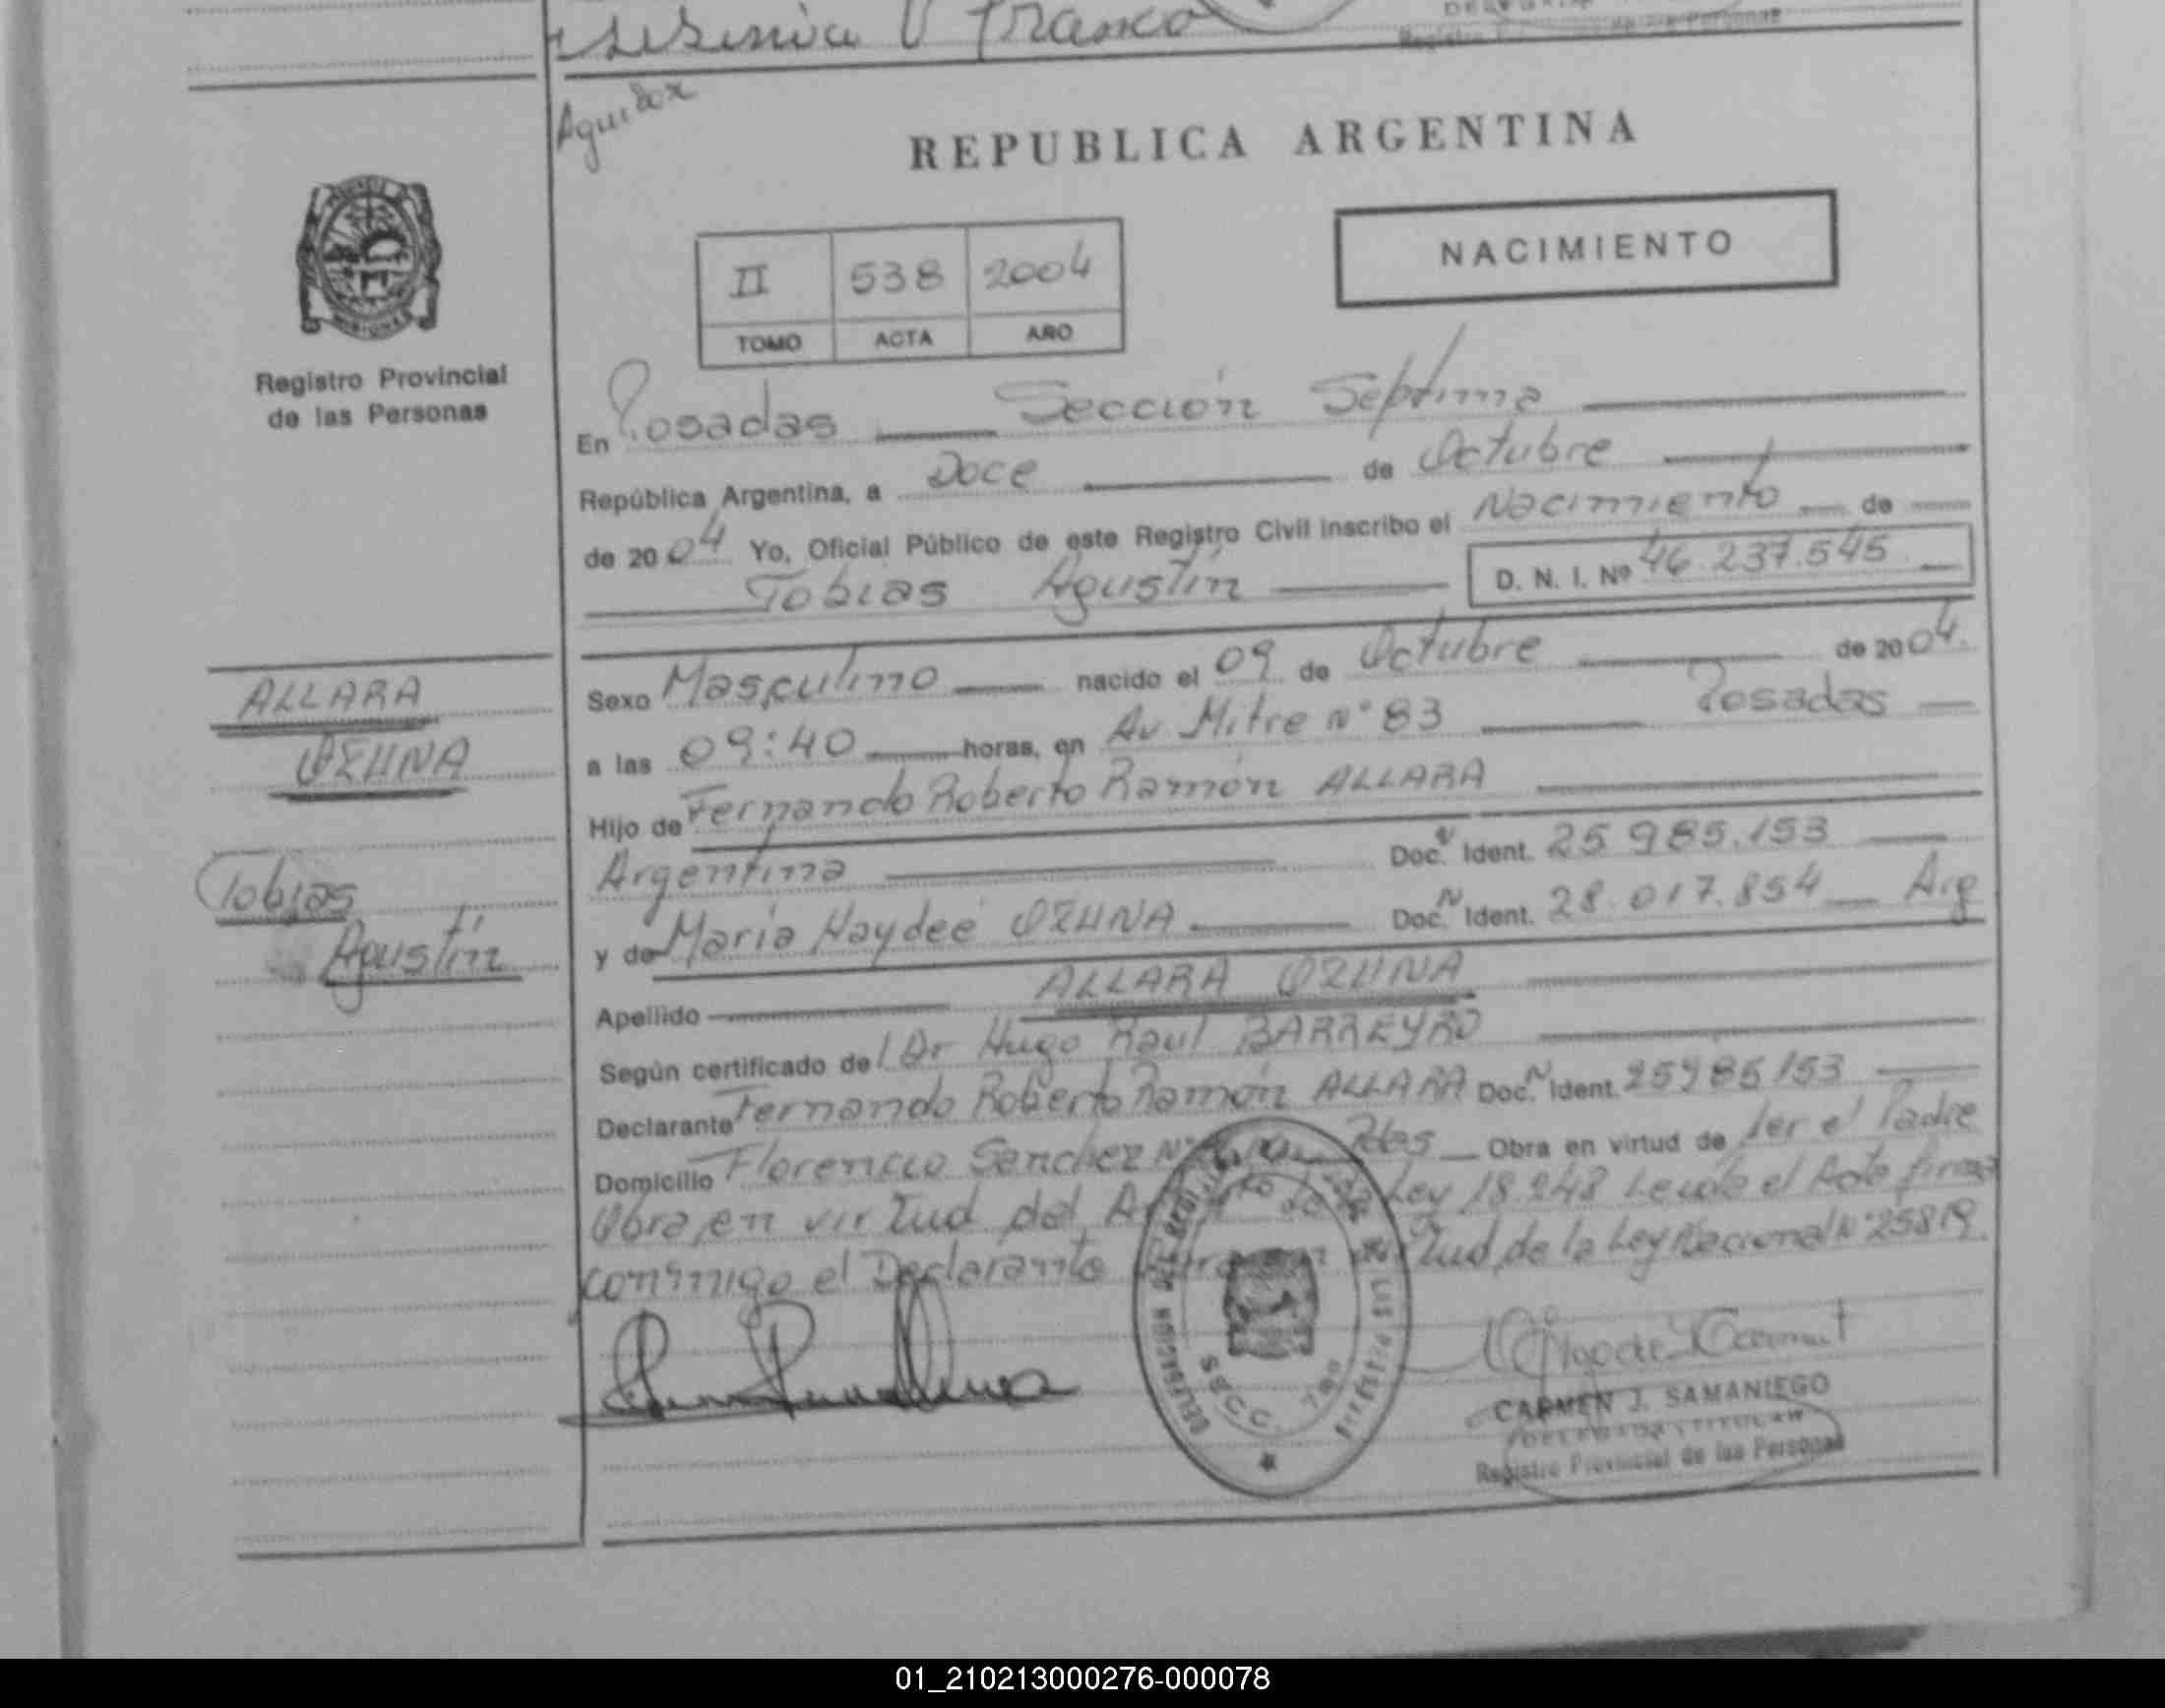 Franco
Registro
de las Personas
REPUBLICA ARGENTINA
NACIMIENTO
II 538 2004
TOMO ACTA AÑO
MISIONES
Registro Provincial
de las Personas
En Posadas Sección Séptima
República Argentina, a Doce de Octubre
de 2004 Yo, Oficial Público de este Registro Civil inscribo el Nacimiento de
Tobias Agustín D. N. I. Nº 46.237.545
ALLARA
OZUNA
Tobias
Agustín
Sexo Masculino nacido el 09 de Octubre de 2004.
a las 09:40 horas, en Av Mitre Nº 83 Posadas
Hijo de Fernando Roberto Ramón ALLARA
Argentina Doc. Ident. 25.985.153
y de María Haydeé OZUNA Doc. Ident. 28.017.854 Arg
Apellido ALLARA OZUNA
Según certificado del Dr Hugo Raul BARREYRO
Declarante Fernando Roberto Ramón ALLARA Doc. Ident. 25985153
Domicilio Florencio Sanchez Pdas Obra en virtud de ser el Padre
Obra en virtud del Ley 18.248 Leída el Acta firma
conmigo el Declarante virtud de la Ley Nacional Nº 25819.
DELEGACION DEL REGISTRO DE LAS PERSONAS
SECC. 7ma
CARMEN J. SAMANIEGO
DELEGADA TITULAR
Registro Provincial de las Personas
01_210213000276-000078